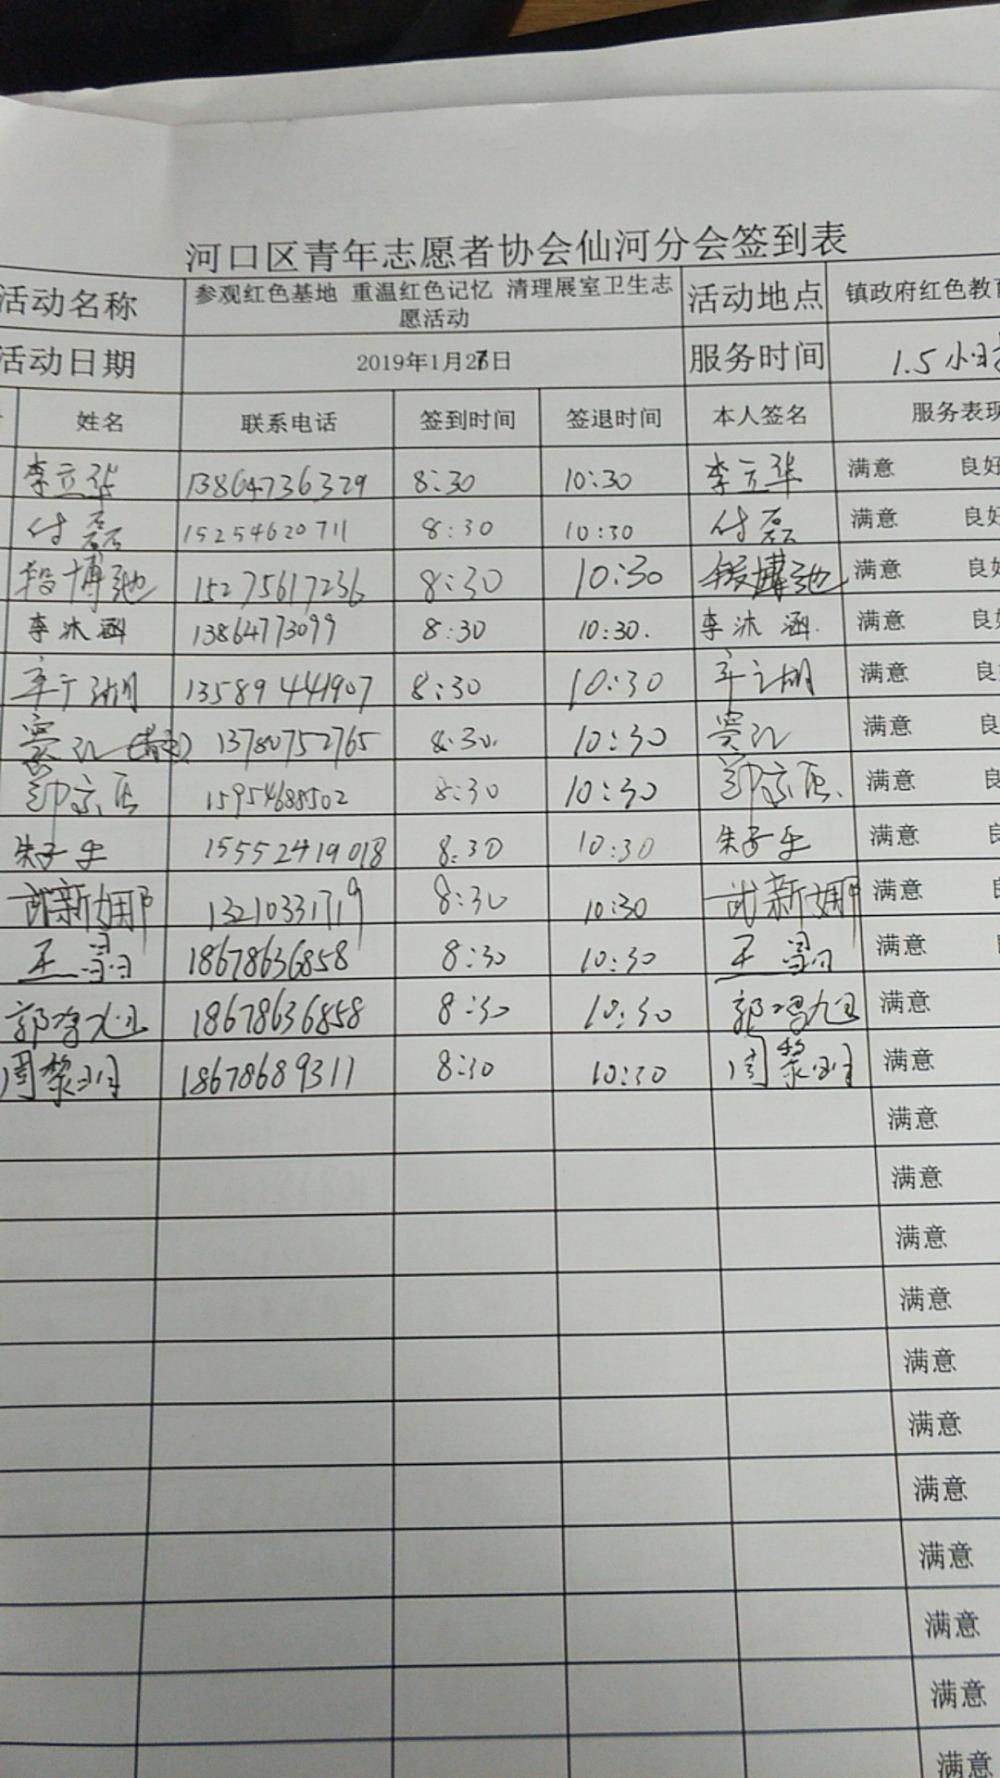 河口区青年志愿者协会仙河分会签到表
活动名称 参观红色基地 重温红色记忆 清理展室卫生志愿活动 活动地点 镇政府红色教育
活动日期 2019年1月26日 服务时间 1.5小时
姓名 联系电话 签到时间 签退时间 本人签名 服务表现
李立华 13864736329 8:30 10:30 李立华 满意 良好
付磊 15254620711 8:30 10:30 付磊 满意 良好
段博弛 15275617236 8:30 10:30 段博弛 满意 良好
李沐涵 13864773099 8:30 10:30. 李沐涵. 满意 良好
13589441907 8:30 10:30 满意 良
窦 13780752765 8:30. 10:30 窦 满意 良
15954688502 8:30 10:30 满意 良
朱子玉 15552419018 8:30 10:30 朱子玉 满意 良
武新娜 13210331719 8:30 10:30 武新娜 满意 良
王 18678636858 8:30 10:30 王 满意
郭 18678636858 8:30 10:30 郭 满意
周黎 18678689311 8:30 10:30 周黎 满意
满意
满意
满意
满意
满意
满意
满意
满意
满意
满意
满意